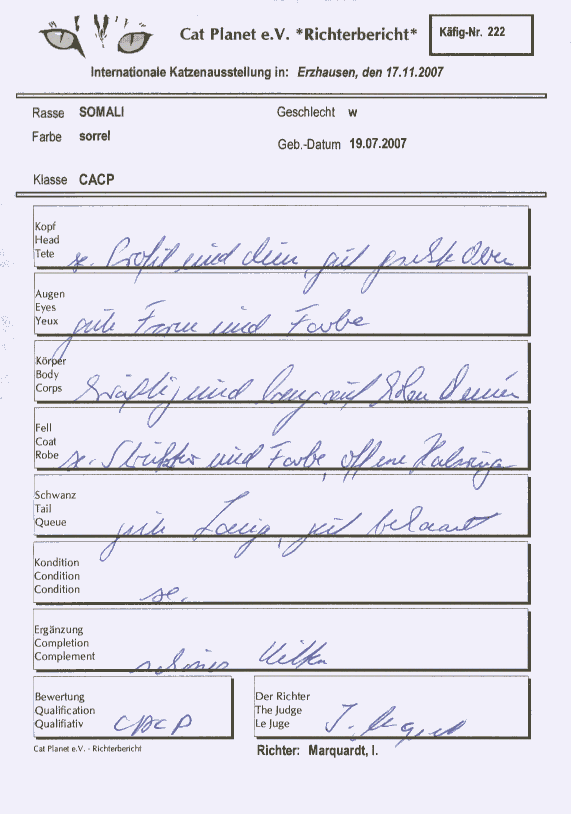 Cat Planet e.V. *Richterbericht*
Käfig-Nr. 222
Internationale Katzenausstellung in: Erzhausen, den 17.11.2007
Rasse SOMALI
Geschlecht w
Farbe sorrel
Geb.-Datum 19.07.2007
Klasse CACP
Kopf
Head
Tete
se. Profil und Kinn, gut gesetzte Ohren
Augen
Eyes
Yeux
gute Form und Farbe
Körper
Body
Corps
kräftig und auf Beinen
Fell
Coat
Robe
se. Struktur und Farbe, offene Halsringe
Schwanz
Tail
Queue
gute Länge, gut behaart
Kondition
Condition
Condition
se.
Ergänzung
Completion
Complement
schönes Kitten
Bewertung
Qualification
Qualifiativ
CACP
Der Richter
The Judge
Le Juge
Cat Planet e.V. - Richterbericht
Richter: Marquardt, I.